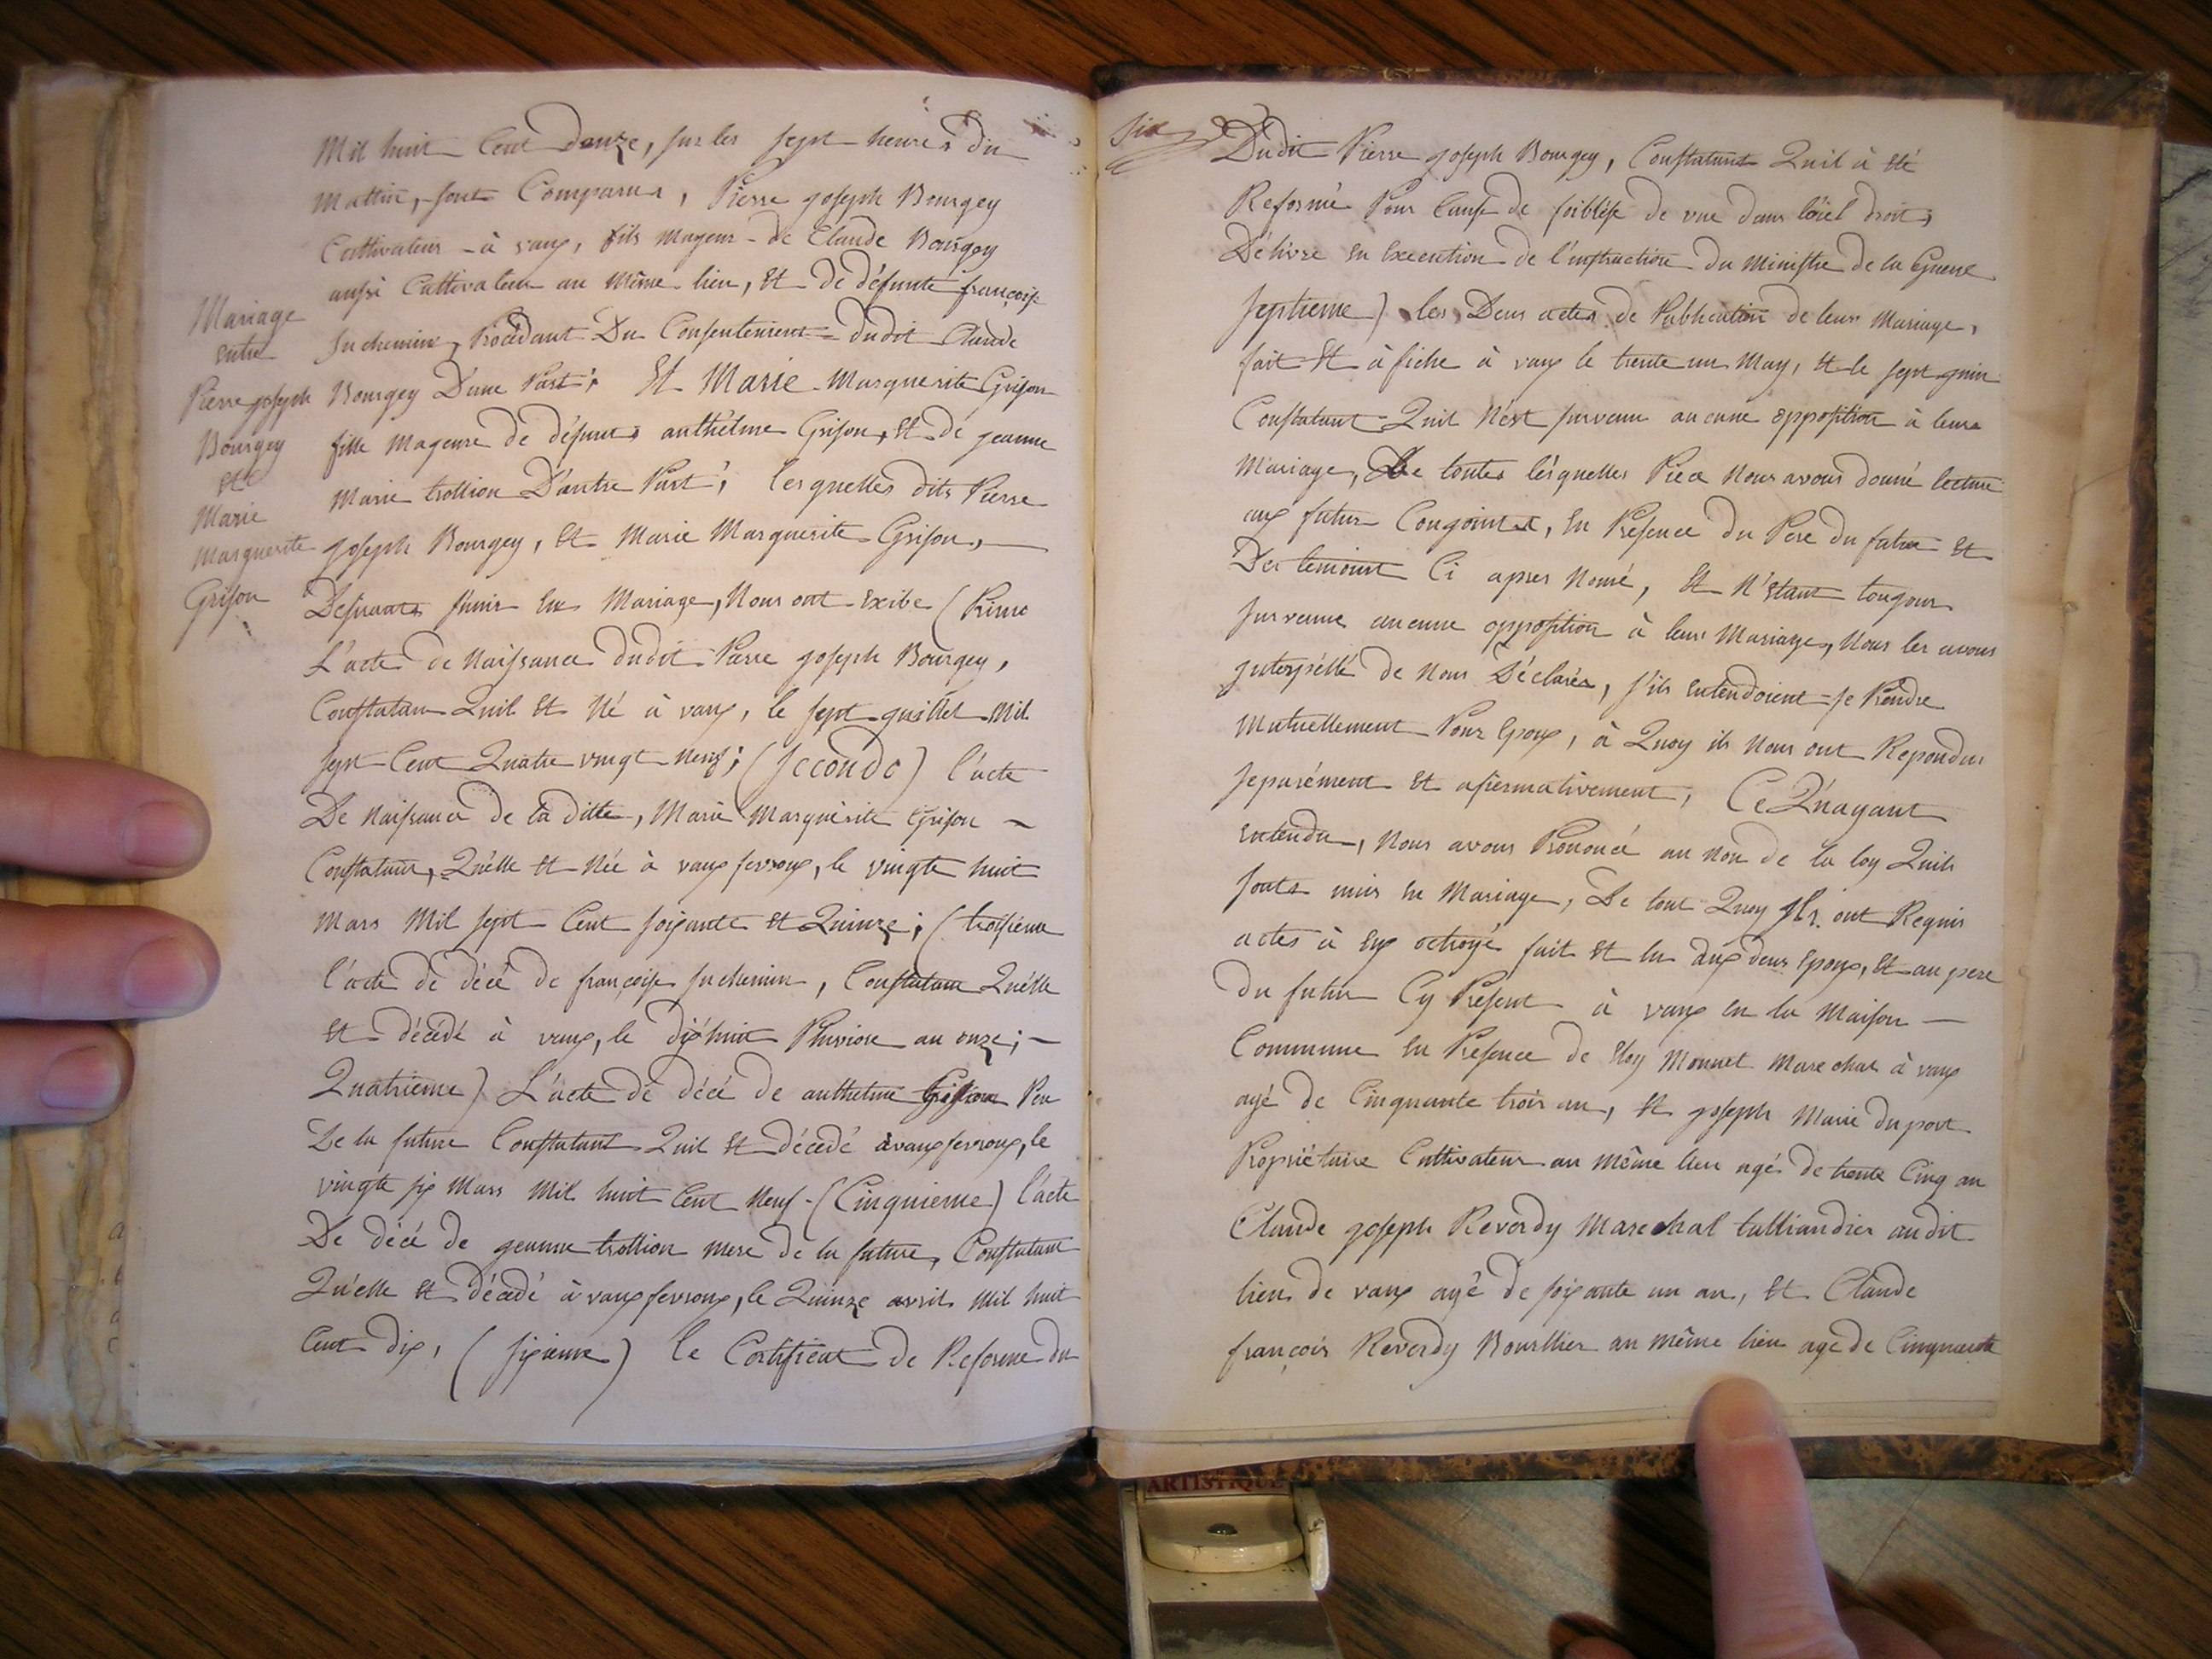 Mil huit Cent douze, sur les sept heures du
Mattin, sont Comparus, Pierre joseph Bourgey
Cultivateur à vaux, fils mageur de Claude Bourgey
aussi Cultivateur au même lieu, Et de défunte françoise
Suchemin, Procédant Du Consentement dudit Claude
Bourgey D'une Part; Et Marie Marguerite Grison
fille mageure de défunt anthelme Grison, Et de jeanne
Marie trollion D'autre Part; lesquelles dits Pierre
joseph Bourgey, Et Marie Marguerite Grison,
Desirants s'unir En Mariage, Nous ont Exibe (Primo
L'acte de Naissance dudit Pierre joseph Bourgey,
Constatan Quil Et Né à vaux, le sept juillet Mil
sept Cent Quatre vingt Neuf; (secondo) l'acte
De Naissance de la ditte, Marie Marguerite Grison
Constatant, Qu'elle Et Née à vaux fevroux, le vingte huit
Mars Mil sept Cent soixante Et Quinze; (troisieme
l'acte de décé de françoise suchemin, Constatant Qu'elle
Et décédé à vaux, le dixhuit Pluviose an onze;
Quatrieme) L'acte de décé de anthelme Grison Pere
De la future Constatant Quil Et décédé à vaux fevroux, le
vingte six Mars Mil huit Cent Neuf (Cinquieme) l'acte
De décé de jeanne trollion mere de la future, Constatant
Qu'elle Et décédé à vaux fevroux, le Quinze avril Mil huit
Cent dix, (sixieme) le Certificat de Reforme du
Mariage
entre
Pierre joseph
Bourgey
Et
Marie
Marguerite
Grison
six
Dudit Pierre joseph Bourgey, Constatant Quil à Eté
Reformé Pour Cause de foiblesse de vue dans l'oiel droit,
Délivré En Execution de l'instruction du Ministre de la Guerre
septieme) les Deux actes de Publication de leur Mariage,
fait Et à fiche à vaux le trente un May, Et le sept juin
Constatant Quil N'est survenu aucune opposition à leurs
Mariage, De toutes lesquelles Piece Nous avons donné lecture
aux futur Conjoints, En Présence du Pere du futur Et
Des temoint Ci apres Nomé, Et N'Etant toujour
survenue aucune opposition à leur Mariage, Nous les avons
interpéllé de Nous Déclarés, s'ils entendoient se Prendre
Mutuellement Pour Epoux, à Quoy ils Nous ont Repondus
separément Et afiermativement, Ce Q'uayant
entendu, Nous avons Prononcé au Nom de la loy Quils
sonts unis En Mariage, De tout Quoy Ils ont Requis
actes à Eux octroyé fait Et lu aux deux Epoux, Et au pere
du futur Cy Présent à vaux en la Maison
Commune En Présence de Eloy Monnet Marechal à vaux
agé de Cinquante trois an, Et joseph Marie duport
Propriétaire Cultivateur au même lieu agés de trente Cinq an
Claude joseph Reverdy Marechal talliandier audit
lieu de vaux agé de soixante un an, Et Claude
françois Reverdy Bourllier au même lieu age de Cinquante
ARTISTIQUE